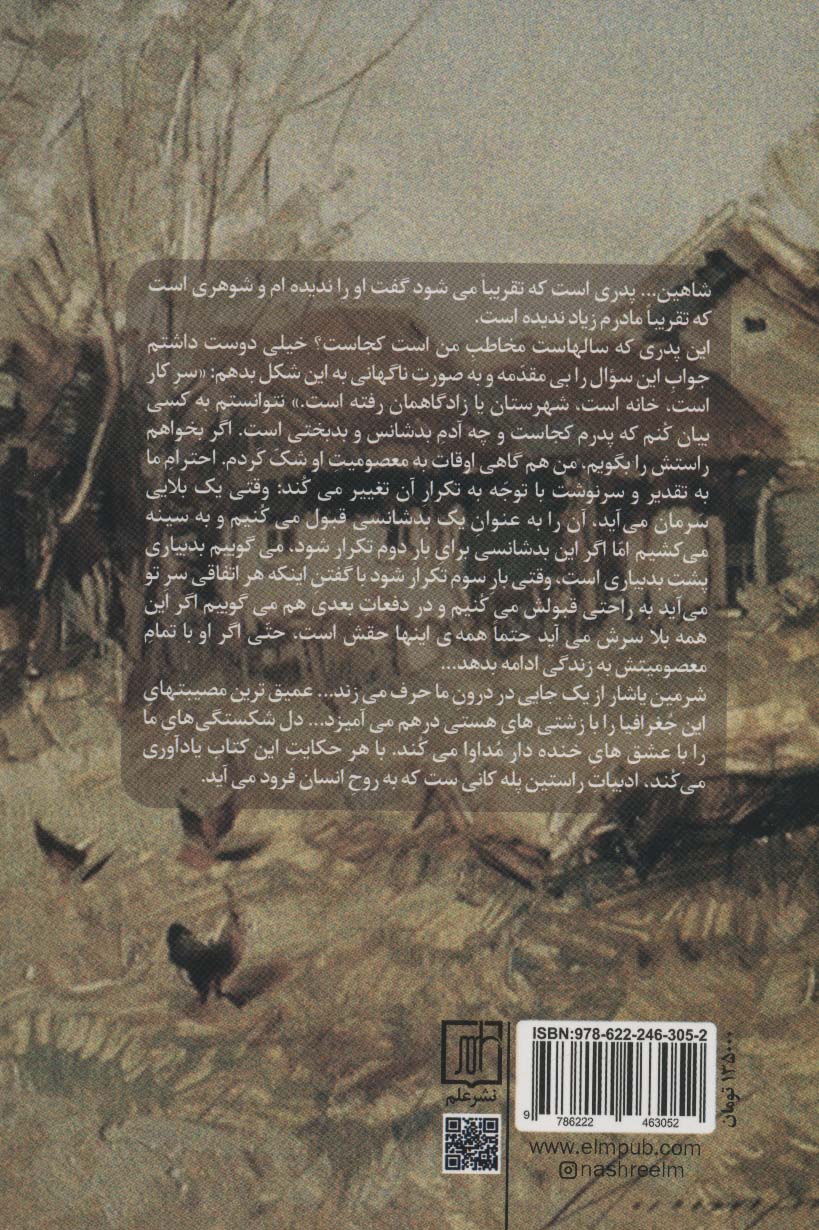 شاهین... پدری است که تقریباً می شود گفت او را ندیده ام و شوهری است
که تقریباً مادرم زیاد ندیده است.
این پدری که سالهاست مخاطب من است کجاست؟ خیلی دوست داشتم
جواب این سؤال را بی مقدّمه و به صورتِ ناگهانی به این شکل بدهم: «سر کار
است، خانه است، شهرستان یا زادگاهمان رفته است.» نتوانستم به کسی
بیان کُنم که پدرم کجاست و چه آدمِ بدشانس و بدبختی است. اگر بخواهم
راستش را بگویم، من هم گاهی اوقات به معصومیت او شک کردم. احترامِ ما
به تقدیر و سرنوشت با توجّه به تکرار آن تغییر می کُند؛ وقتی یک بلایی
سرمان می‌آید، آن را به عنوانِ یک بدشانسی قبول می کُنیم و به سینه
می‌کشیم امّا اگر این بدشانسی برای بار دوم تکرار شود، می گوییم بدبیاری
پشت بدبیاری است، وقتی بارِ سوم تکرار شود با گفتن اینکه هر اتفاقی سر تو
می‌آید به راحتی قبولش می کُنیم و در دفعات بعدی هم می گوییم اگر این
همه بلا سرش می آید حتماً همه ی اینها حقش است، حتّی اگر او با تمامِ
معصومیتش به زندگی ادامه بدهد...
شرمین یاشار از یک جایی در درون ما حرف می زند... عمیق ترین مصیبتهایِ
این جُغرافیا را با زشتی های هستی درهم می آمیزد... دل شکستگی‌های ما
را با عشق های خنده دار مُداوا می کُند. با هر حکایتِ این کتاب یادآوری
می‌کُند، ادبیات راستین پله کانی ست که به روحِ انسان فرود می آید.
نشرعلم
ISBN:978-622-246-305-2
9 786222 463052
۱۳۵۰۰۰ تومان
www.elmpub.com
nashreelm